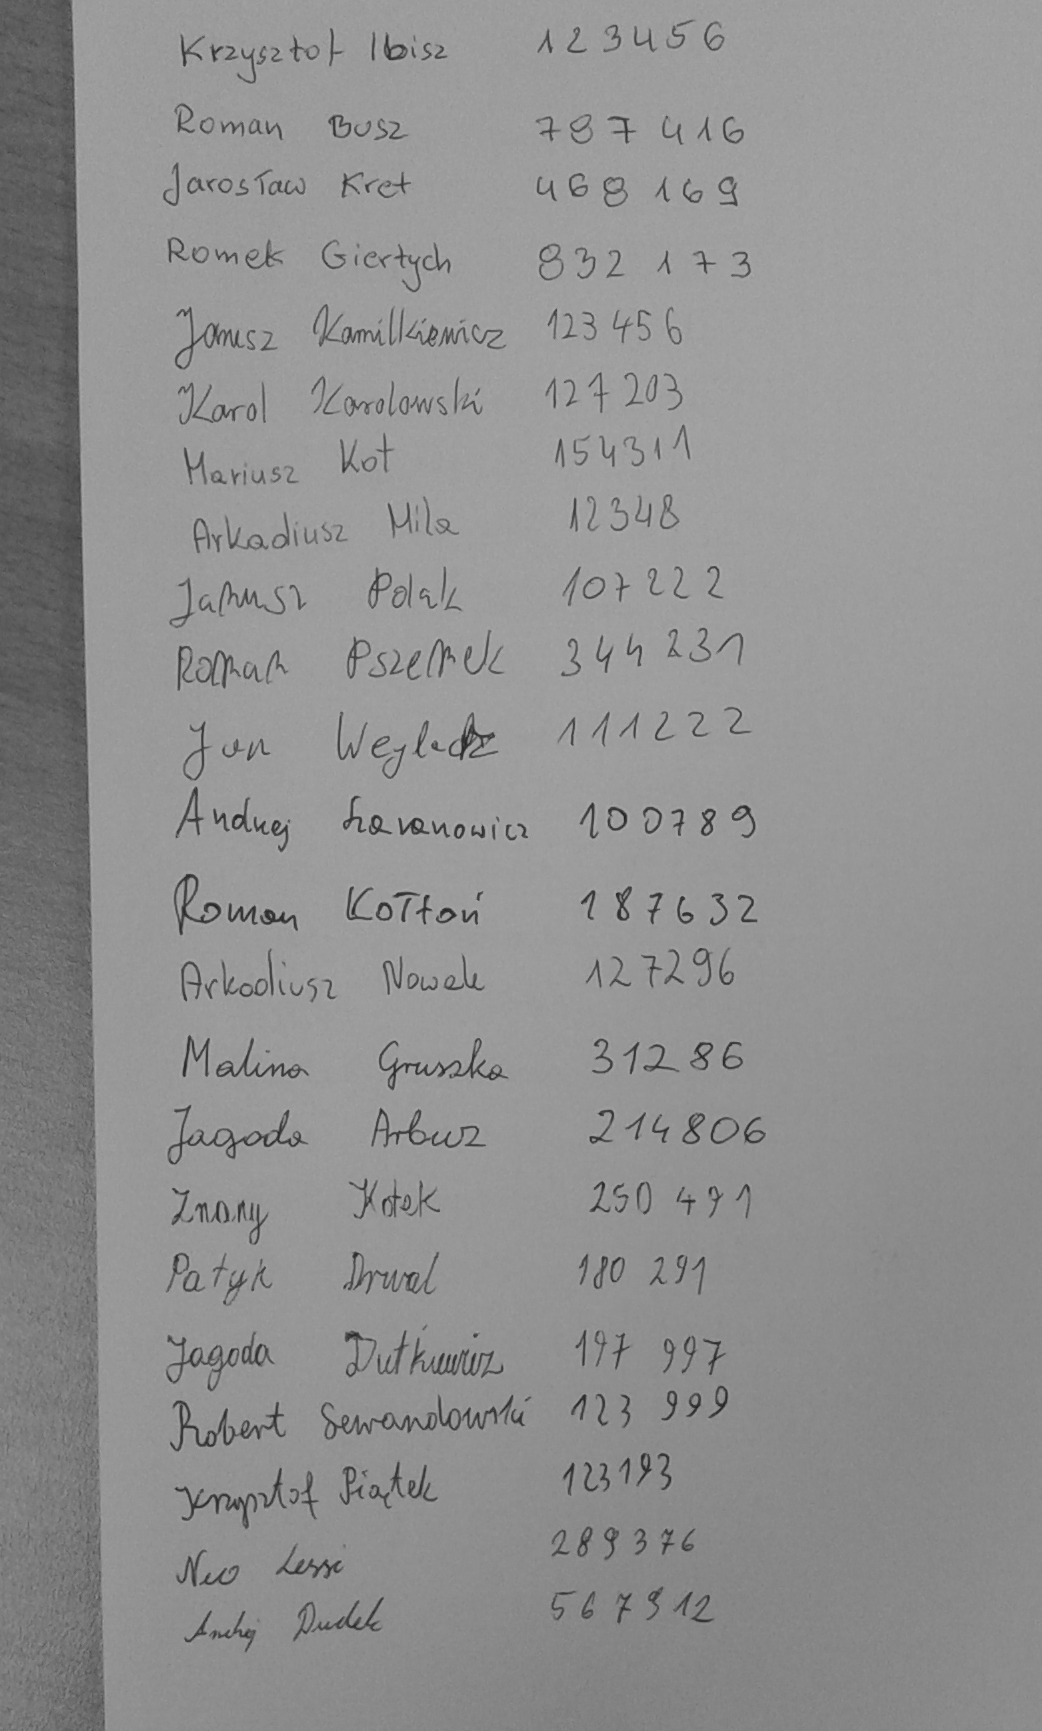 Krzysztof Ibisz 123456
Roman Busz 787 416
Jarosław Kret 468 169
Romek Giertych 832 173
Janusz Kamilkiewicz 123 456
Karol Karolowski 127 203
Mariusz Kot 154311
Arkadiusz Mila 12348
Janusz Polak 107222
Roman Pszemek 344 231
Jan 111222
Andrzej 100789
Roman Kołtoń 187632
Arkadiusz Nowak 127296
Malina Gruszka 31286
Jagoda Arbuz 214806
Znany Kotek 250 491
Patyk Drwal 180 291
Jagoda Dutkiewicz 197 997
Robert Lewandowski 123 999
Krzysztof Piątek 123193
Neo Lessi 289376
Andrzej Dudek 567912